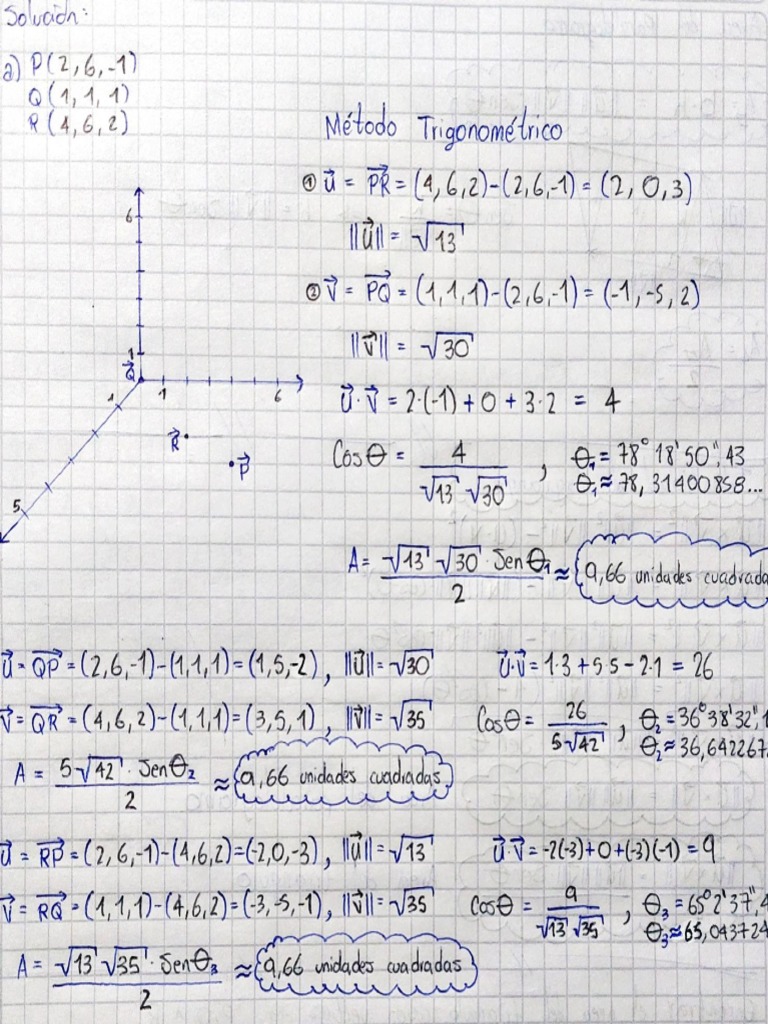 Solución:
a) P(2,6,-1)
Q(1,1,1)
R(4,6,2)
Método Trigonométrico
① u⃗ = PR⃗ = (4,6,2)-(2,6,-1) = (2, 0, 3)
||u⃗|| = √13
② v⃗ = PQ⃗ = (1,1,1)-(2,6,-1) = (-1, -5, 2)
||v⃗|| = √30
u⃗·v⃗ = 2·(-1) + 0 + 3·2 = 4
Cos θ = 4 / √13 √30 , θ₁ = 78° 18' 50'',43
θ₁ ≈ 78,31400858...
6
1
Q⃗
1
1
6
R⃗
P⃗
5
A = √13 √30 · Sen θ₁ / 2 ≈ 9,66 unidades cuadrada
u⃗ = QP⃗ = (2,6,-1)-(1,1,1) = (1,5,-2), ||u⃗|| = √30 u⃗·v⃗ = 1·3 + 5·5 - 2·1 = 26
v⃗ = QR⃗ = (4,6,2)-(1,1,1) = (3,5,1), ||v⃗|| = √35 Cos θ = 26 / 5√42 , θ₂ = 36° 38' 32'',1
θ₂ ≈ 36,642267
A = 5√42 · Sen θ₂ / 2 ≈ 9,66 unidades cuadradas
u⃗ = RP⃗ = (2,6,-1)-(4,6,2) = (-2,0,-3), ||u⃗|| = √13 u⃗·v⃗ = -2(-3)+0+(-3)(-1) = 9
v⃗ = RQ⃗ = (1,1,1)-(4,6,2) = (-3,-5,-1), ||v⃗|| = √35 cos θ = 9 / √13 √35 , θ₃ = 65° 2' 37'',4
θ₃ ≈ 65,043724
A = √13 √35 · Sen θ₃ / 2 ≈ 9,66 unidades cuadradas